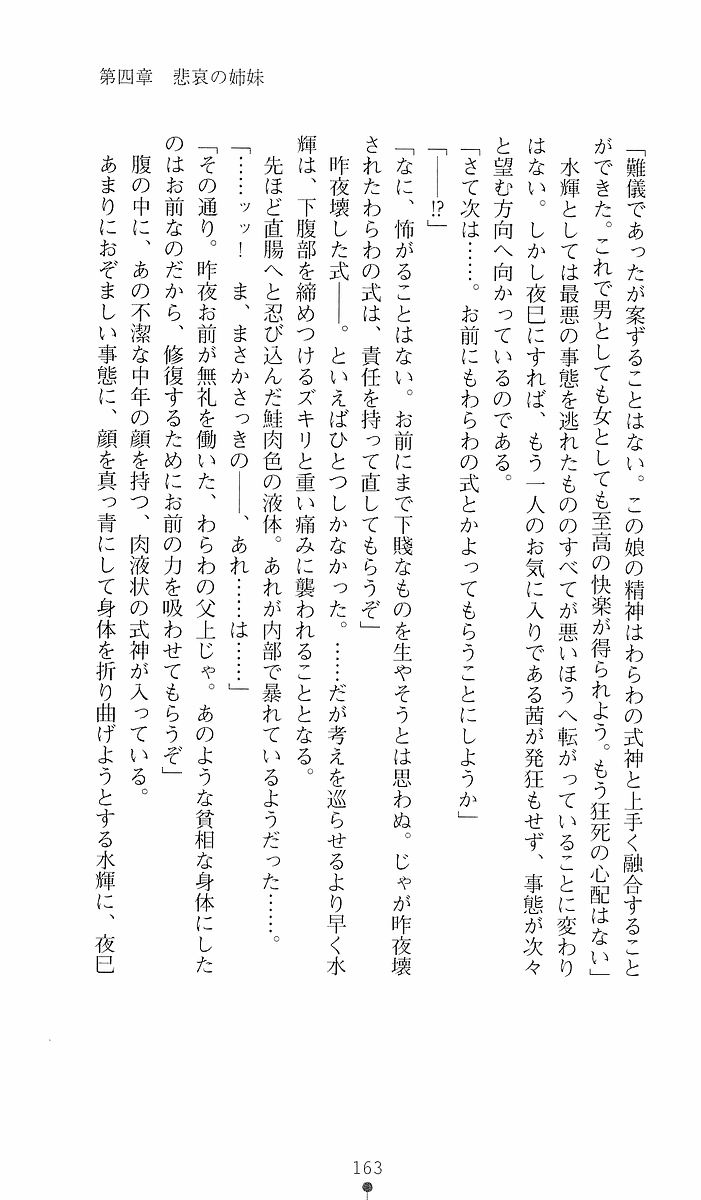 第四章　悲哀の姉妹
「難儀であったが案ずることはない。この娘の精神はわらわの式神と上手く融合すること
ができた。これで男としても女としても至高の快楽が得られよう。もう狂死の心配はない」
　水輝としては最悪の事態を逃れたもののすべてが悪いほうへ転がっていることに変わり
はない。しかし夜巳にすれば、もう一人のお気に入りである茜が発狂もせず、事態が次々
と望む方向へ向かっているのである。
「さて次は……。お前にもわらわの式とかよってもらうことにしようか」
「――!?」
「なに、怖がることはない。お前にまで下賤なものを生やそうとは思わぬ。じゃが昨夜壊
されたわらわの式は、責任を持って直してもらうぞ」
　昨夜壊した式――。といえばひとつしかなかった。……だが考えを巡らせるより早く水
輝は、下腹部を締めつけるズキリと重い痛みに襲われることとなる。
　先ほど直腸へと忍び込んだ鮭肉色の液体。あれが内部で暴れているようだった……。
「……ッッ！　ま、まさかさっきの――、あれ……は……」
「その通り。昨夜お前が無礼を働いた、わらわの父上じゃ。あのような貧相な身体にした
のはお前なのだから、修復するためにお前の力を吸わせてもらうぞ」
　腹の中に、あの不潔な中年の顔を持つ、肉液状の式神が入っている。
　あまりにおぞましい事態に、顔を真っ青にして身体を折り曲げようとする水輝に、夜巳
163